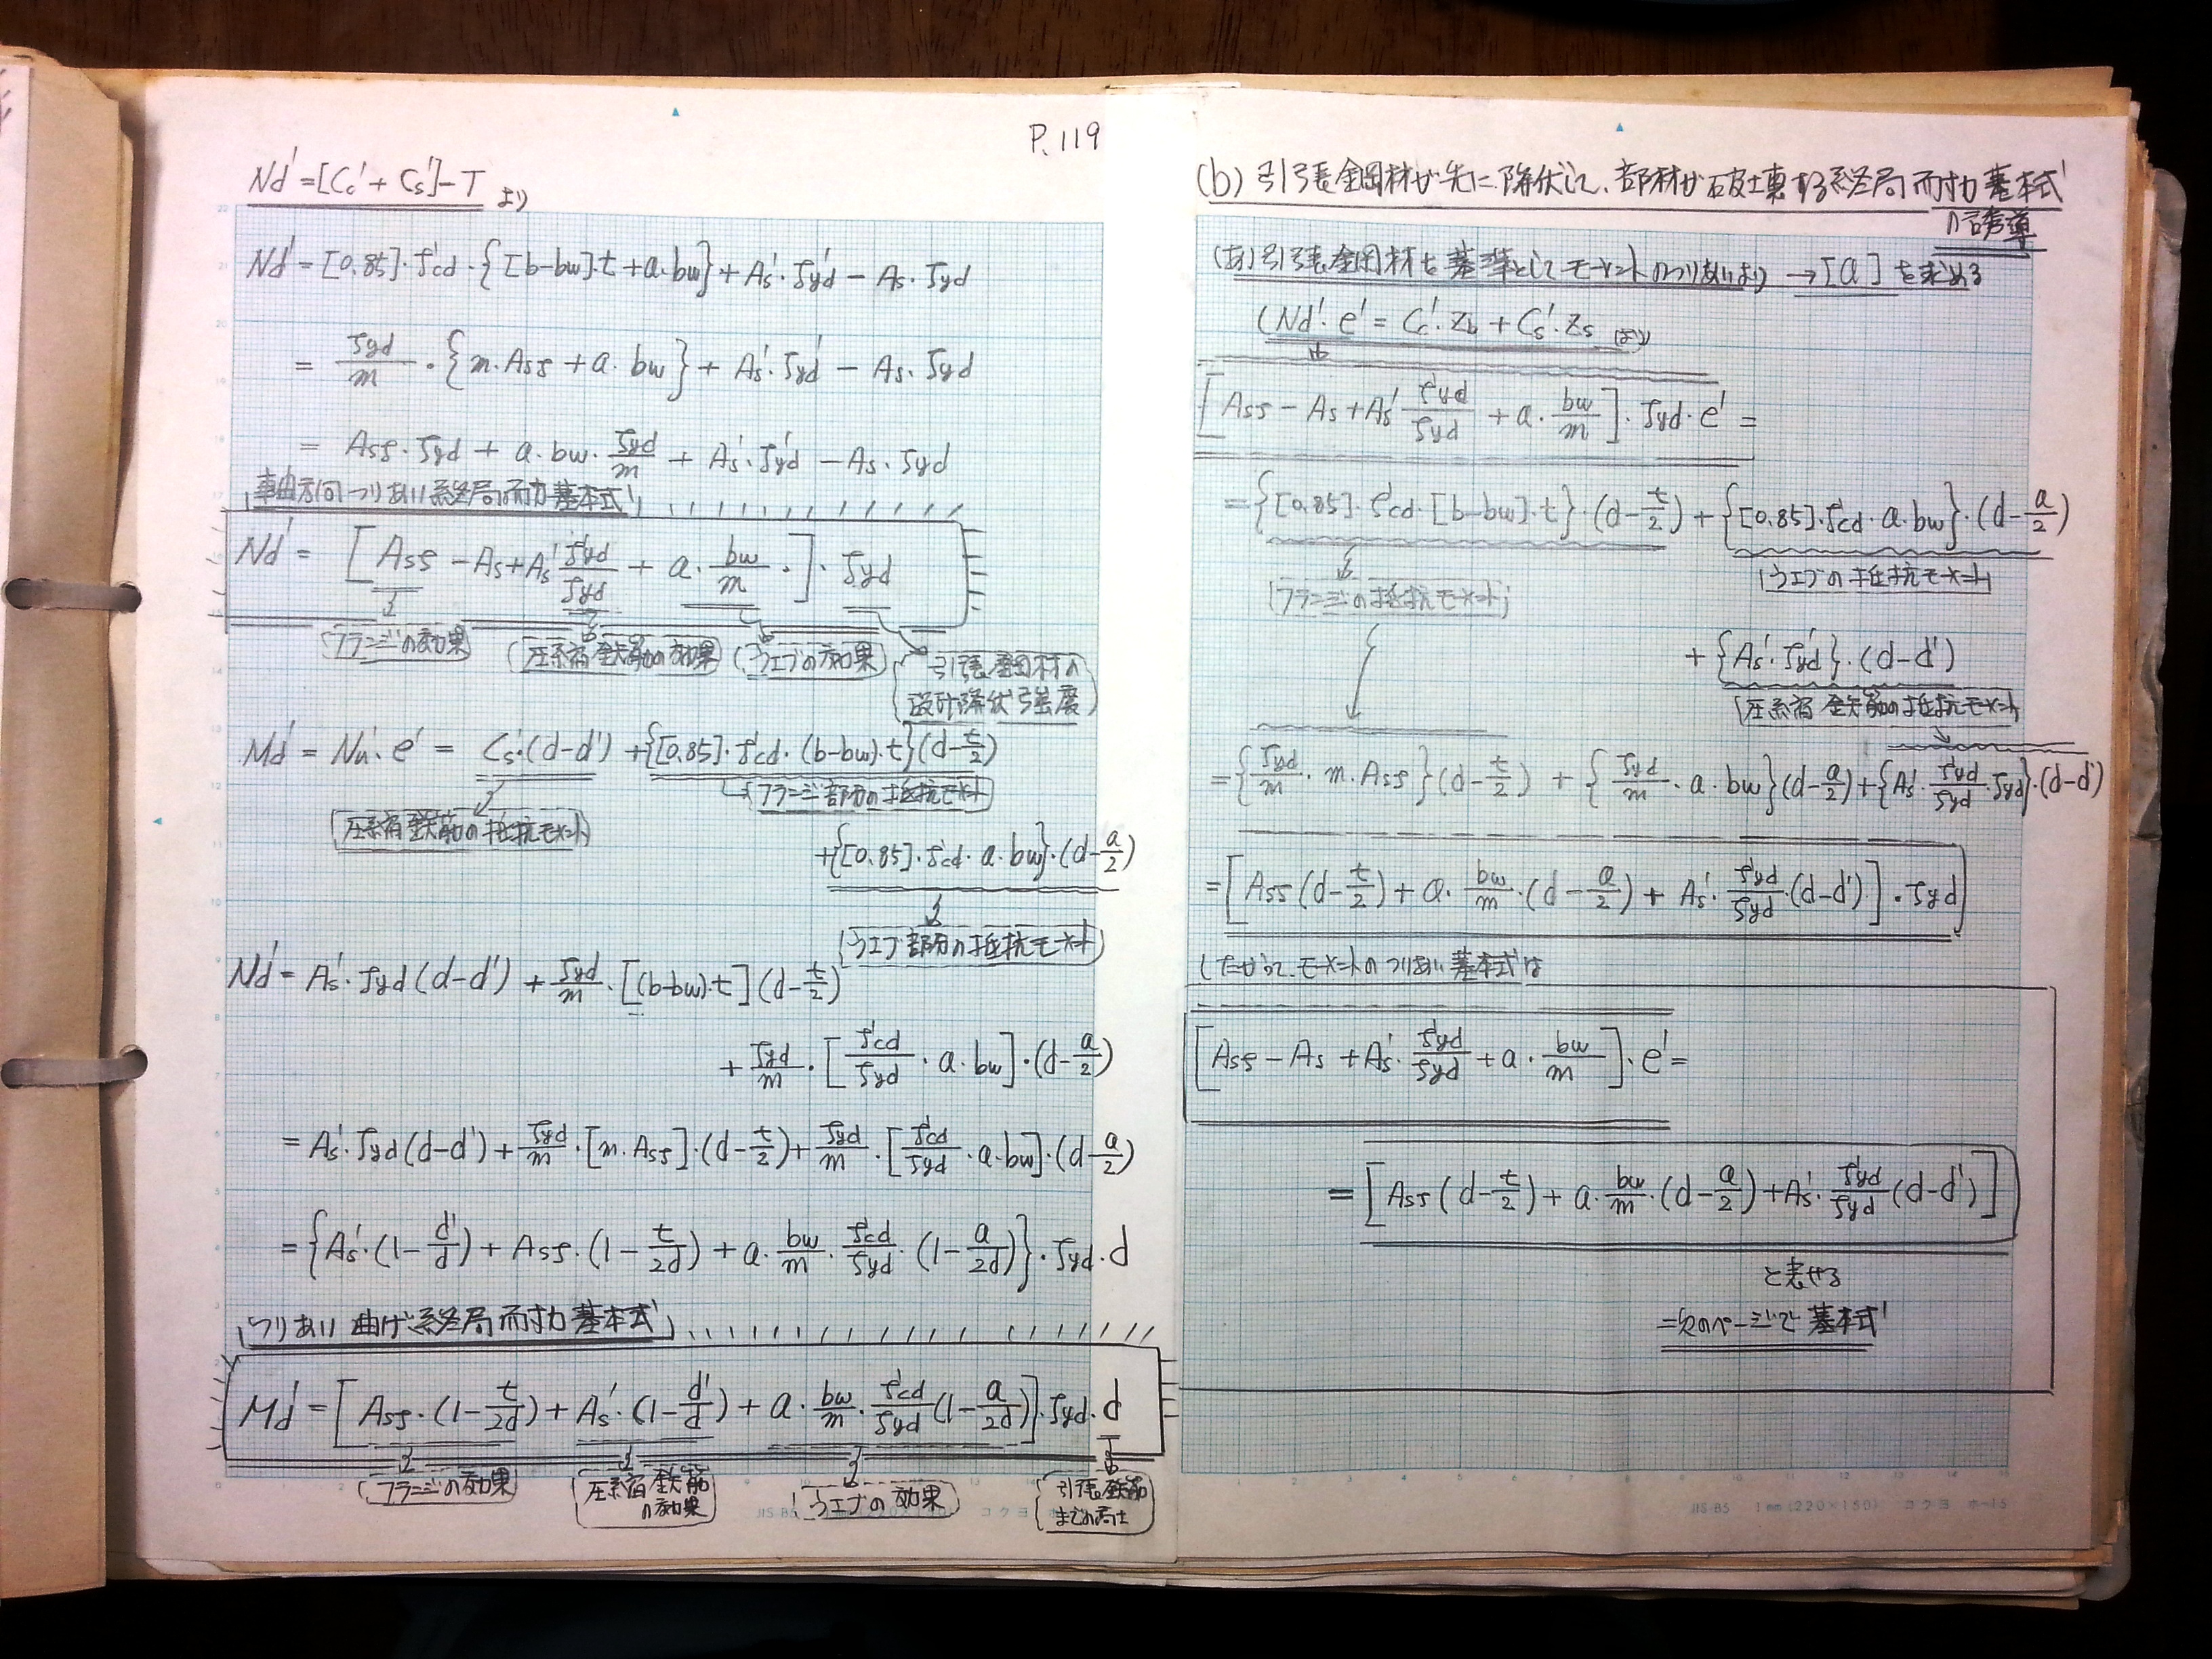 P.119
Nd' = [Cc' + Cs'] - T より
Nd' = [0.85]・f'cd・{[b-bw]・t + a・bw} + As'・fyd' - As・fyd
= fyd/m・{m・Asf + a・bw} + As'・fyd' - As・fyd
= Asf・fyd + a・bw・fyd/m + As'・fyd' - As・fyd
軸方向つりあい終局耐力基本式
Nd' = [Asf - As + As' f'yd/fyd + a・bw/m・]・fyd
フランジの効果
圧縮鉄筋の効果
ウエブの効果
引張鋼材の
設計降伏強度
Md' = Nu'・e' = Cs'・(d-d') + {[0.85]・f'cd・(b-bw)・t}(d-t/2)
フランジ部分の抵抗モーメント
圧縮鉄筋の抵抗モーメント
+{[0.85]・f'cd・a・bw}・(d-a/2)
ウエブ部分の抵抗モーメント
Nd' = As'・fyd(d-d') + fyd/m・[(b-bw)・t](d-t/2)
+ fyd/m・[f'cd/fyd・a・bw]・(d-a/2)
= As'・fyd(d-d') + fyd/m・[m・Asf]・(d-t/2) + fyd/m・[f'cd/fyd・a・bw]・(d-a/2)
= {As'・(1-d'/d) + Asf・(1-t/2d) + a・bw/m・f'cd/fyd・(1-a/2d)}・fyd・d
つりあい曲げ終局耐力基本式
Md' = [Asf・(1-t/2d) + As'・(1-d'/d) + a・bw/m・f'cd/fyd(1-a/2d)]・fyd・d
フランジの効果
圧縮鉄筋
の効果
ウエブの効果
引張鉄筋
までの高さ
(b) 引張鋼材が先に降伏して、部材が破壊する終局耐力基本式
の誘導
(あ)引張鋼材を基準としてモーメントのつりあいより →[a]を求める
(Nd'・e' = Cc'・Zb + Cs'・Zs より)
[Asf - As + As' f'yd/fyd + a・bw/m]・fyd・e' =
= {[0.85]・f'cd・[b-bw]・t}・(d-t/2) + {[0.85]・f'cd・a・bw}・(d-a/2)
フランジの抵抗モーメント
ウエブの抵抗モーメント
+ {As'・fyd'}・(d-d')
圧縮鉄筋の抵抗モーメント
= {fyd/m・m・Asf}(d-t/2) + {fyd/m・a・bw}(d-a/2) + {As'・f'yd/fyd・fyd}・(d-d')
= [Asf(d-t/2) + a・bw/m・(d-a/2) + As'・f'yd/fyd・(d-d')]・fyd
したがって、モーメントのつりあい基本式は
[Asf - As + As'・f'yd/fyd + a・bw/m]・e' =
= [Asf(d-t/2) + a・bw/m・(d-a/2) + As'・f'yd/fyd(d-d')]
と表せる
=次のページで基本式
JIS B5 1mm(220×150) コクヨ ホ-15